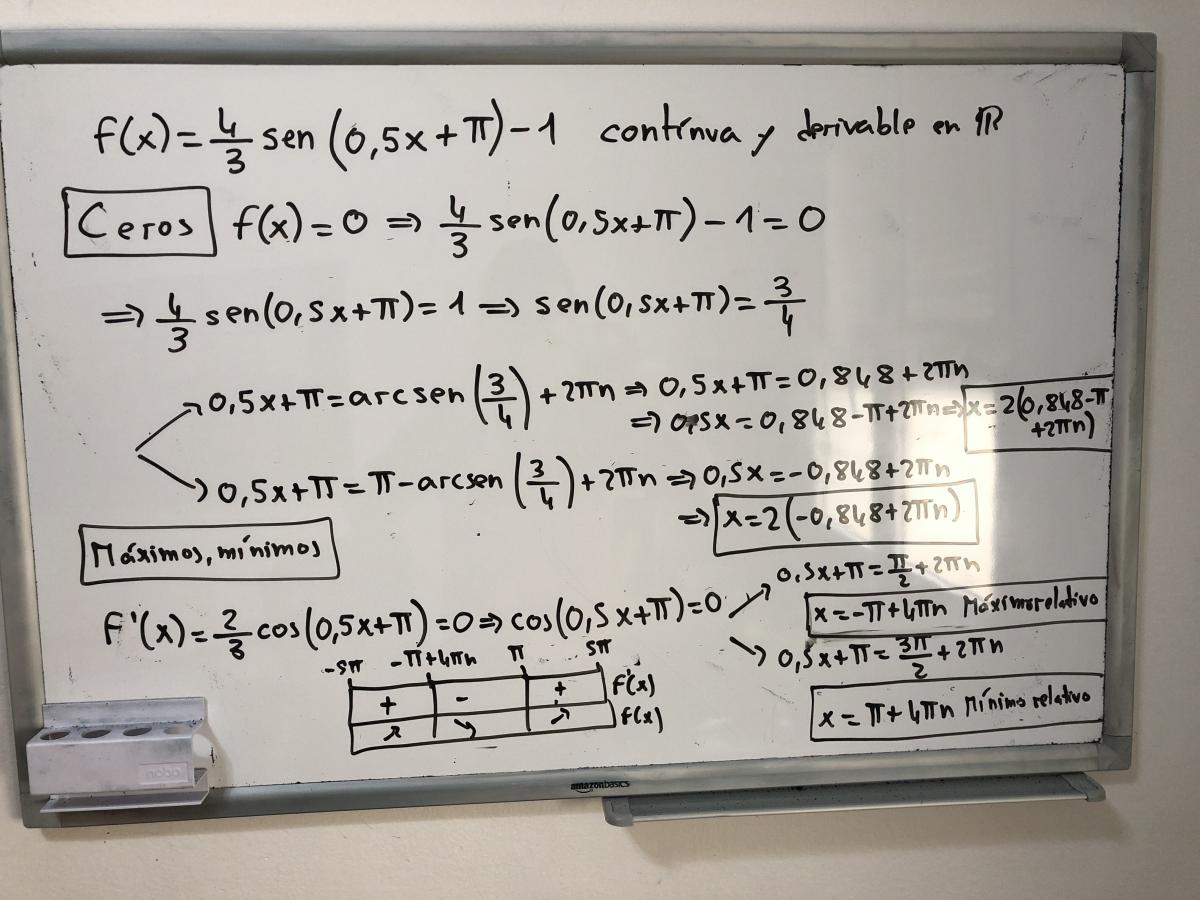 f(x) = 4/3 sen (0,5x + π) - 1 contínua y derivable en ℝ
Ceros f(x) = 0 ⇒ 4/3 sen(0,5x+π) - 1 = 0
⇒ 4/3 sen(0,5x+π) = 1 ⇒ sen(0,5x+π) = 3/4
0,5x+π = arcsen(3/4) + 2πn ⇒ 0,5x+π = 0,848 + 2πn
⇒ 0,5x = 0,848-π+2πn ⇒ x = 2(0,848-π+2πn)
0,5x+π = π-arcsen(3/4)+2πn ⇒ 0,5x = -0,848+2πn
⇒ x = 2(-0,848+2πn)
Máximos, mínimos
f'(x) = 2/3 cos(0,5x+π) = 0 ⇒ cos(0,5x+π) = 0
0,5x+π = π/2 + 2πn
x = -π+4πn Máximo relativo
0,5x+π = 3π/2 + 2πn
x = π+4πn Mínimo relativo
-5π -π+4πn π 5π
+ - + f'(x)
↗ ↘ ↗ f(x)
nobo
amazonbasics